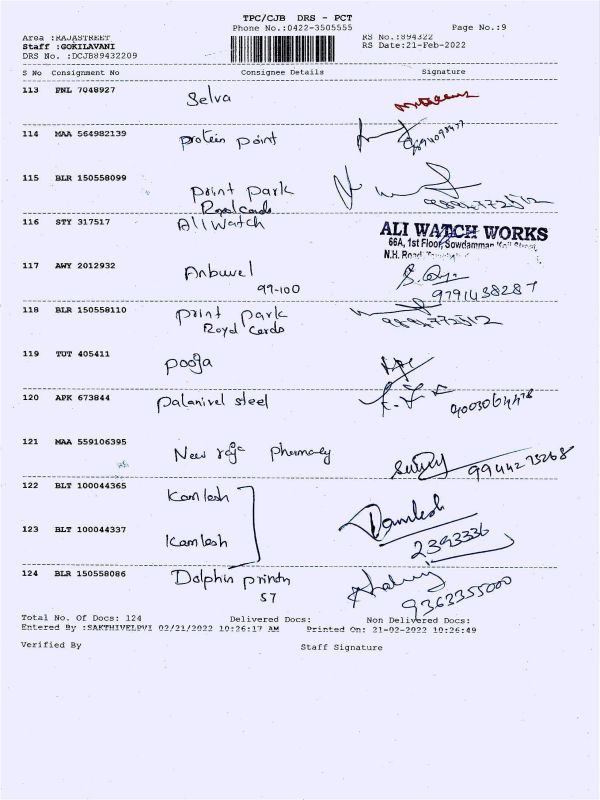 TPC/CJB DRS - PCT
Phone No.:0422-3505555 Page No.:9
Area :RAJASTREET RS No.:894322
Staff :GOKILAVANI RS Date:21-Feb-2022
DRS No. :DCJB89432209
S No Consignment No Consignee Details Signature
113 PNL 7048927 Selva
114 MAA 564982139 protein point
115 BLR 150558099 print park
Royal Cards
116 STY 317517 Ali Watch
ALI WATCH WORKS
66A, 1st Floor, Sowdamman Koil Street,
N.H. Road,
117 AWY 2012932 Anbuvel
99-100 9791438287
118 BLR 150558110 print park
Royal Cards 9894772512
119 TUT 405411 pooja
120 APK 673844 Palanivel steel
121 MAA 559106395 New raja pharmacy
9944275268
122 BLT 100044365 Kamlesh
Kamlesh
123 BLT 100044337 Kamlesh 2393336
124 BLR 150558086 Dolphin printn
57 9363355000
Total No. Of Docs: 124 Delivered Docs: Non Delivered Docs:
Entered By :SAKTHIVELPVI 02/21/2022 10:26:17 AM Printed On: 21-02-2022 10:26:49
Verified By Staff Signature